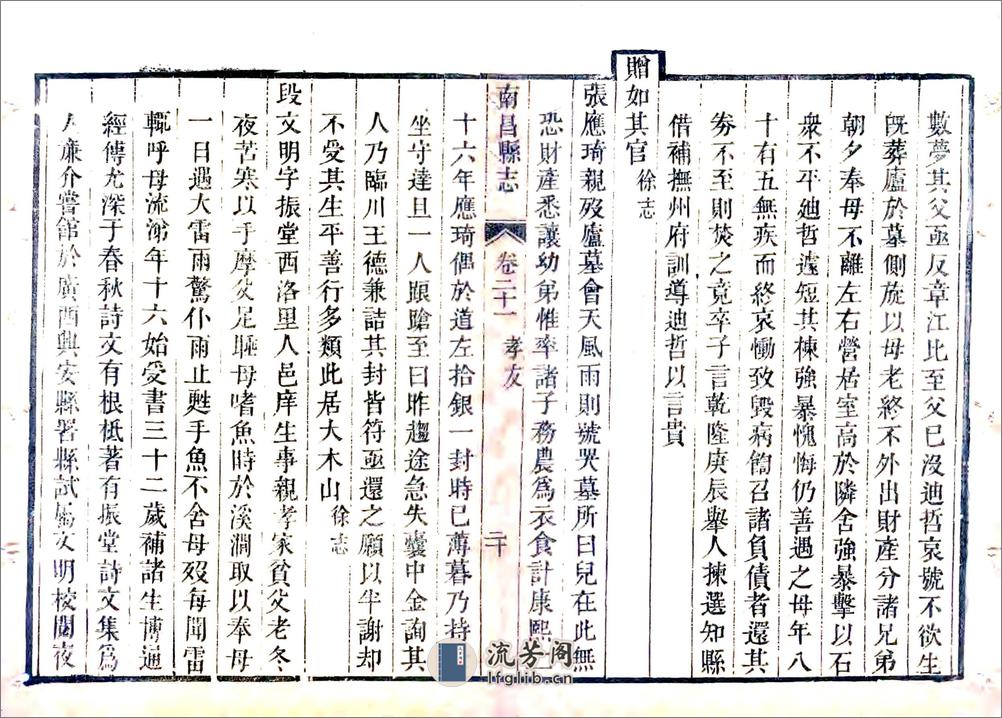 數夢其父亟反章江比至父已沒迪哲哀號不欲生
旣葬廬於墓側旋以母老終不外出財產分諸兄弟
朝夕奉母不離左右營居室高於隣舍強暴擊以石
衆不平廸哲遽短其棟強暴愧悔仍善遇之母年八
十有五無疾而終哀慟致毀病篤召諸負債者還其
劵不至則焚之竟卒子言乾隆庚辰舉人揀選知縣
借補撫州府訓導迪哲以言貴
贈如其官 徐志
張應琦親歿廬墓會天風雨則號哭墓所曰兒在此無
恐財產悉讓幼弟惟率諸子務農爲衣食計康熙
南昌縣志 卷二十一 孝友 二十
十六年應琦偶於道左拾銀一封時已薄暮乃持
坐守達旦一人踉蹌至曰昨趨途急失囊中金詢其
人乃臨川王德兼詰其封皆符亟還之願以半謝却
不受其生平善行多類此居大木山 徐志
段文明字振堂西洛里人邑庠生事親孝家貧父老冬
夜苦寒以手摩父足睡母嗜魚時於溪澗取以奉母
一日遇大雷雨驚仆雨止甦手魚不舍母歿每聞雷
輒呼母流涕年十六始受書三十二歲補諸生博通
經傳尤深于春秋詩文有根柢著有振堂詩文集爲
人廉介嘗館於廣西興安縣署縣試屬文明校閱夜
流芳阁
lfglib.cn